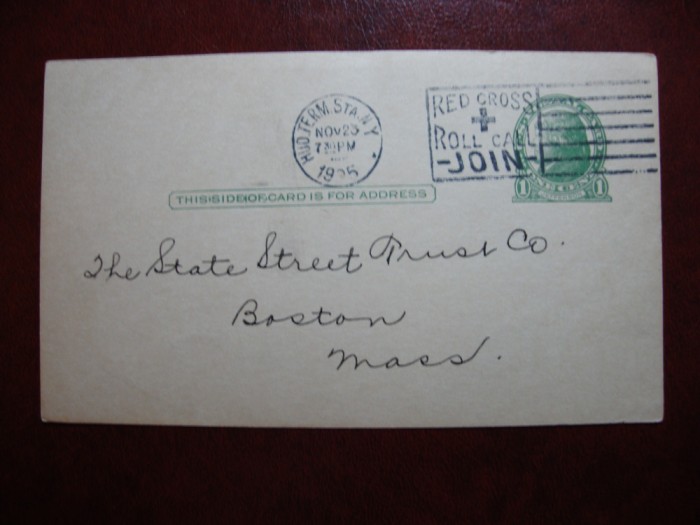 HUD TERM. STA. N.Y.
NOV 23
7 30 PM
1925
RED CROSS
ROLL CALL
-JOIN-
1 1
THIS SIDE OF CARD IS FOR ADDRESS
The State Street Trust Co.
Boston
Mass.